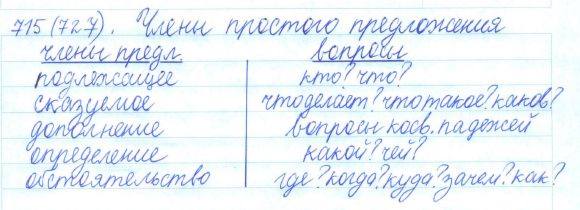 715(727). Члены простого предложения
члены предл. вопросы
подлежащее кто? что?
сказуемое что делает? что такое? каков?
дополнение вопросы косв. падежей
определение какой? чей?
обстоятельство где? когда? куда? зачем? как?